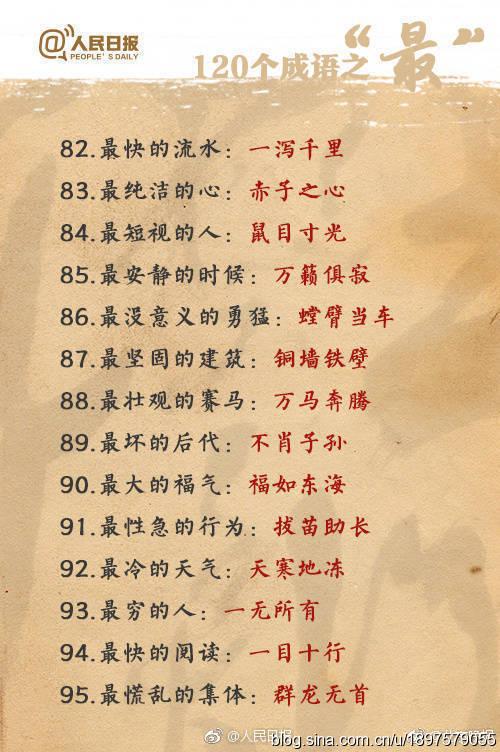 @人民日报
PEOPLE'S DAILY
120个成语之“最”
82.最快的流水：一泻千里
83.最纯洁的心：赤子之心
84.最短视的人：鼠目寸光
85.最安静的时候：万籁俱寂
86.最没意义的勇猛：螳臂当车
87.最坚固的建筑：铜墙铁壁
88.最壮观的赛马：万马奔腾
89.最坏的后代：不肖子孙
90.最大的福气：福如东海
91.最性急的行为：拔苗助长
92.最冷的天气：天寒地冻
93.最穷的人：一无所有
94.最快的阅读：一目十行
95.最慌乱的集体：群龙无首
@人民日报
blog.sina.com.cn/u/1897579055